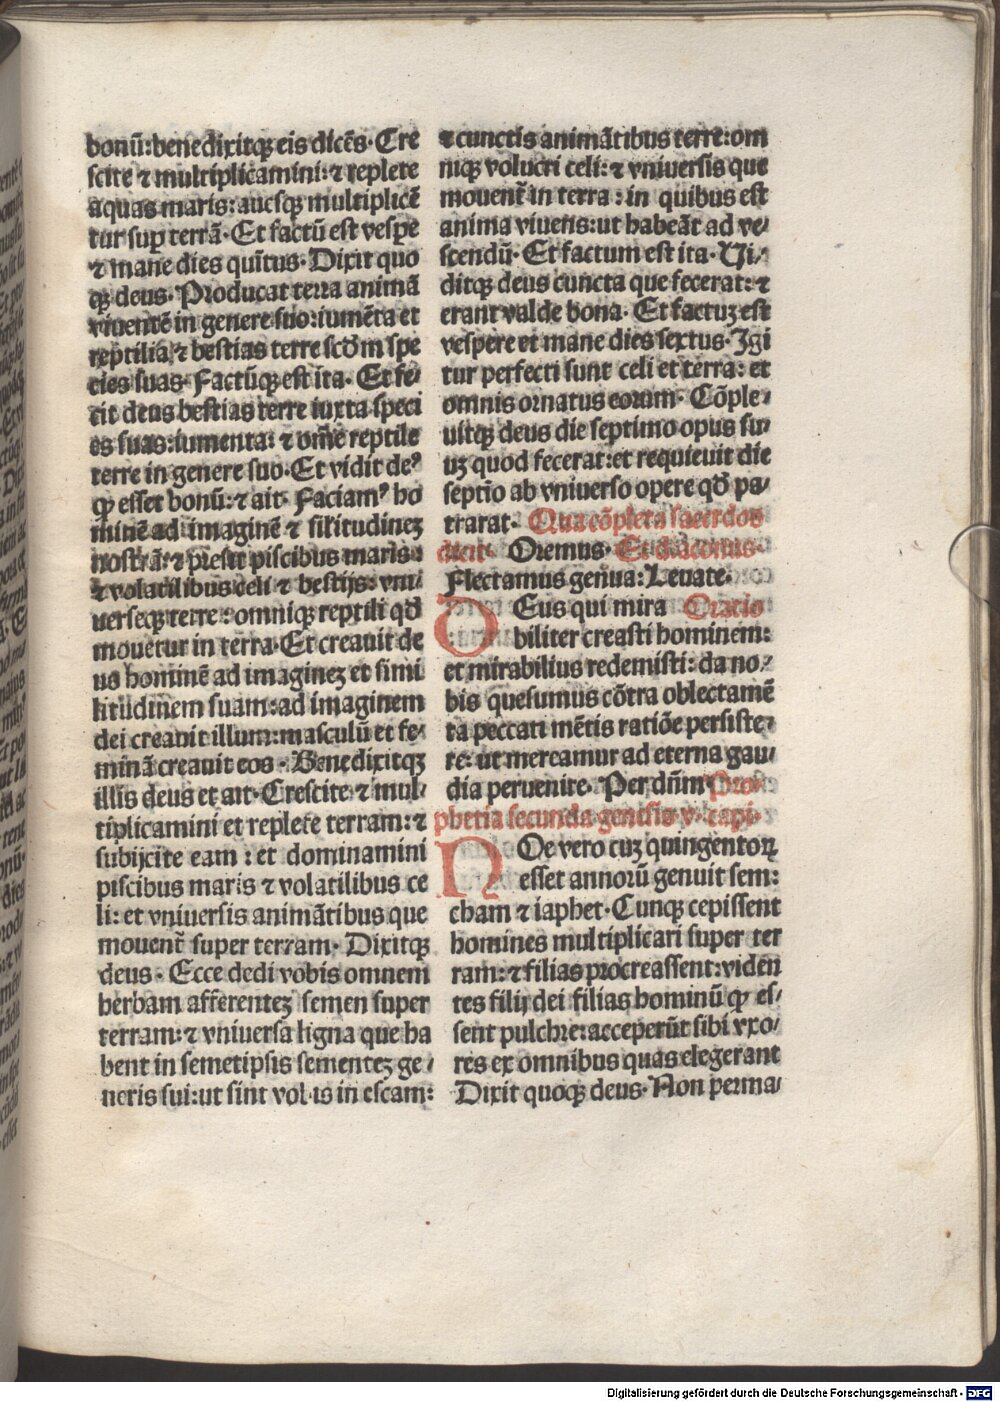 bonū:benedixitqꝫ eis dicēs. Cre
scite ⁊ multiplicamini:⁊ replete
aquas maris: auesqꝫ multiplicē
tur suꝑ terrā. Et factū est vespe
⁊ mane dies quītus. Dixit quo
qꝫ deus. Producat terra animā
viuentē in genere suo:iumēta et
reptilia ⁊ bestias terre scd̄m spe
cies suas. Factūqꝫ est ita. Et fe⸗
cit deus bestias terre iuxta speci
es suas:iumenta: ⁊ om̄e reptile
terre in genere suo. Et vidit deꝰ
ꝙ esset bonū:⁊ ait. Faciamꝰ ho
minē ad imaginē ⁊ sil̄itudineꝫ
nostrā:⁊ presit piscibus maris:
⁊ volatilibus celi ⁊ bestijs: vni⸗
uerseqꝫ terre: omniqꝫ reptili qd̄
mouetur in terra. Et creauit de
us hominē ad imagineꝫ et simi
litudinem suam:ad imaginem
dei creauit illum:masculū et fe⸗
minā creauit eos. Benedixitqꝫ
illis deus et ait. Crescite ⁊ mul⸗
tiplicamini et replete terram:⁊
subijcite eam: et dominamini
piscibus maris ⁊ volatilibus ce
li: et vniuersis animātibus que
mouent᷑ super terram. Dixitqꝫ
deus. Ecce dedi vobis omnem
herbam afferenteꝫ semen super
terram:⁊ vniuersa ligna que ha
bent in semetipsis sementeꝫ ge⸗
neris sui:ut sint vobis in escam:
⁊ cunctis animātibus terre:om
niqꝫ volucri celi:⁊ vniuersis que
mouent᷑ in terra: in quibus est
anima viuens:ut habeāt ad ve⸗
scendū. Et factum est ita. Ui⸗
ditqꝫ deus cuncta que fecerat:⁊
erant valde bona. Et factuꝫ est
vespere et mane dies sextus. Igi
tur perfecti sunt celi et terra: et
omnis ornatus eorum. Cōple⸗
uitqꝫ deus die septimo opus su⸗
uꝫ quod fecerat:et requieuit die
septīo ab vniuerso opere qd̄ pa⸗
trarat. Qua cōpleta sacerdos
dicit. Oremus. Et diaconus.
Flectamus genua: Leuate.
DEus qui mira Oratio
biliter creasti hominem:
et mirabilius redemisti: da no⸗
bis quesumus cōtra oblectamē
ta peccati mētis ratiōe persiste⸗
re: ut mereamur ad eterna gau⸗
dia peruenire. Per dn̄m Pro⸗
phetia secunda genesis v. capi.
NOe vero cuꝫ quingentoꝝ
esset annorū genuit sem:
cham ⁊ iaphet. Cunqꝫ cepissent
homines multiplicari super ter
ram:⁊ filias procreassent:viden
tes filij dei filias hominū ꝙ es⸗
sent pulchre:acceperūt sibi vxo⸗
res ex omnibus quas elegerant
Dixit quoqꝫ deus. Non perma⸗
Digitalisierung gefördert durch die Deutsche Forschungsgemeinschaft - DFG